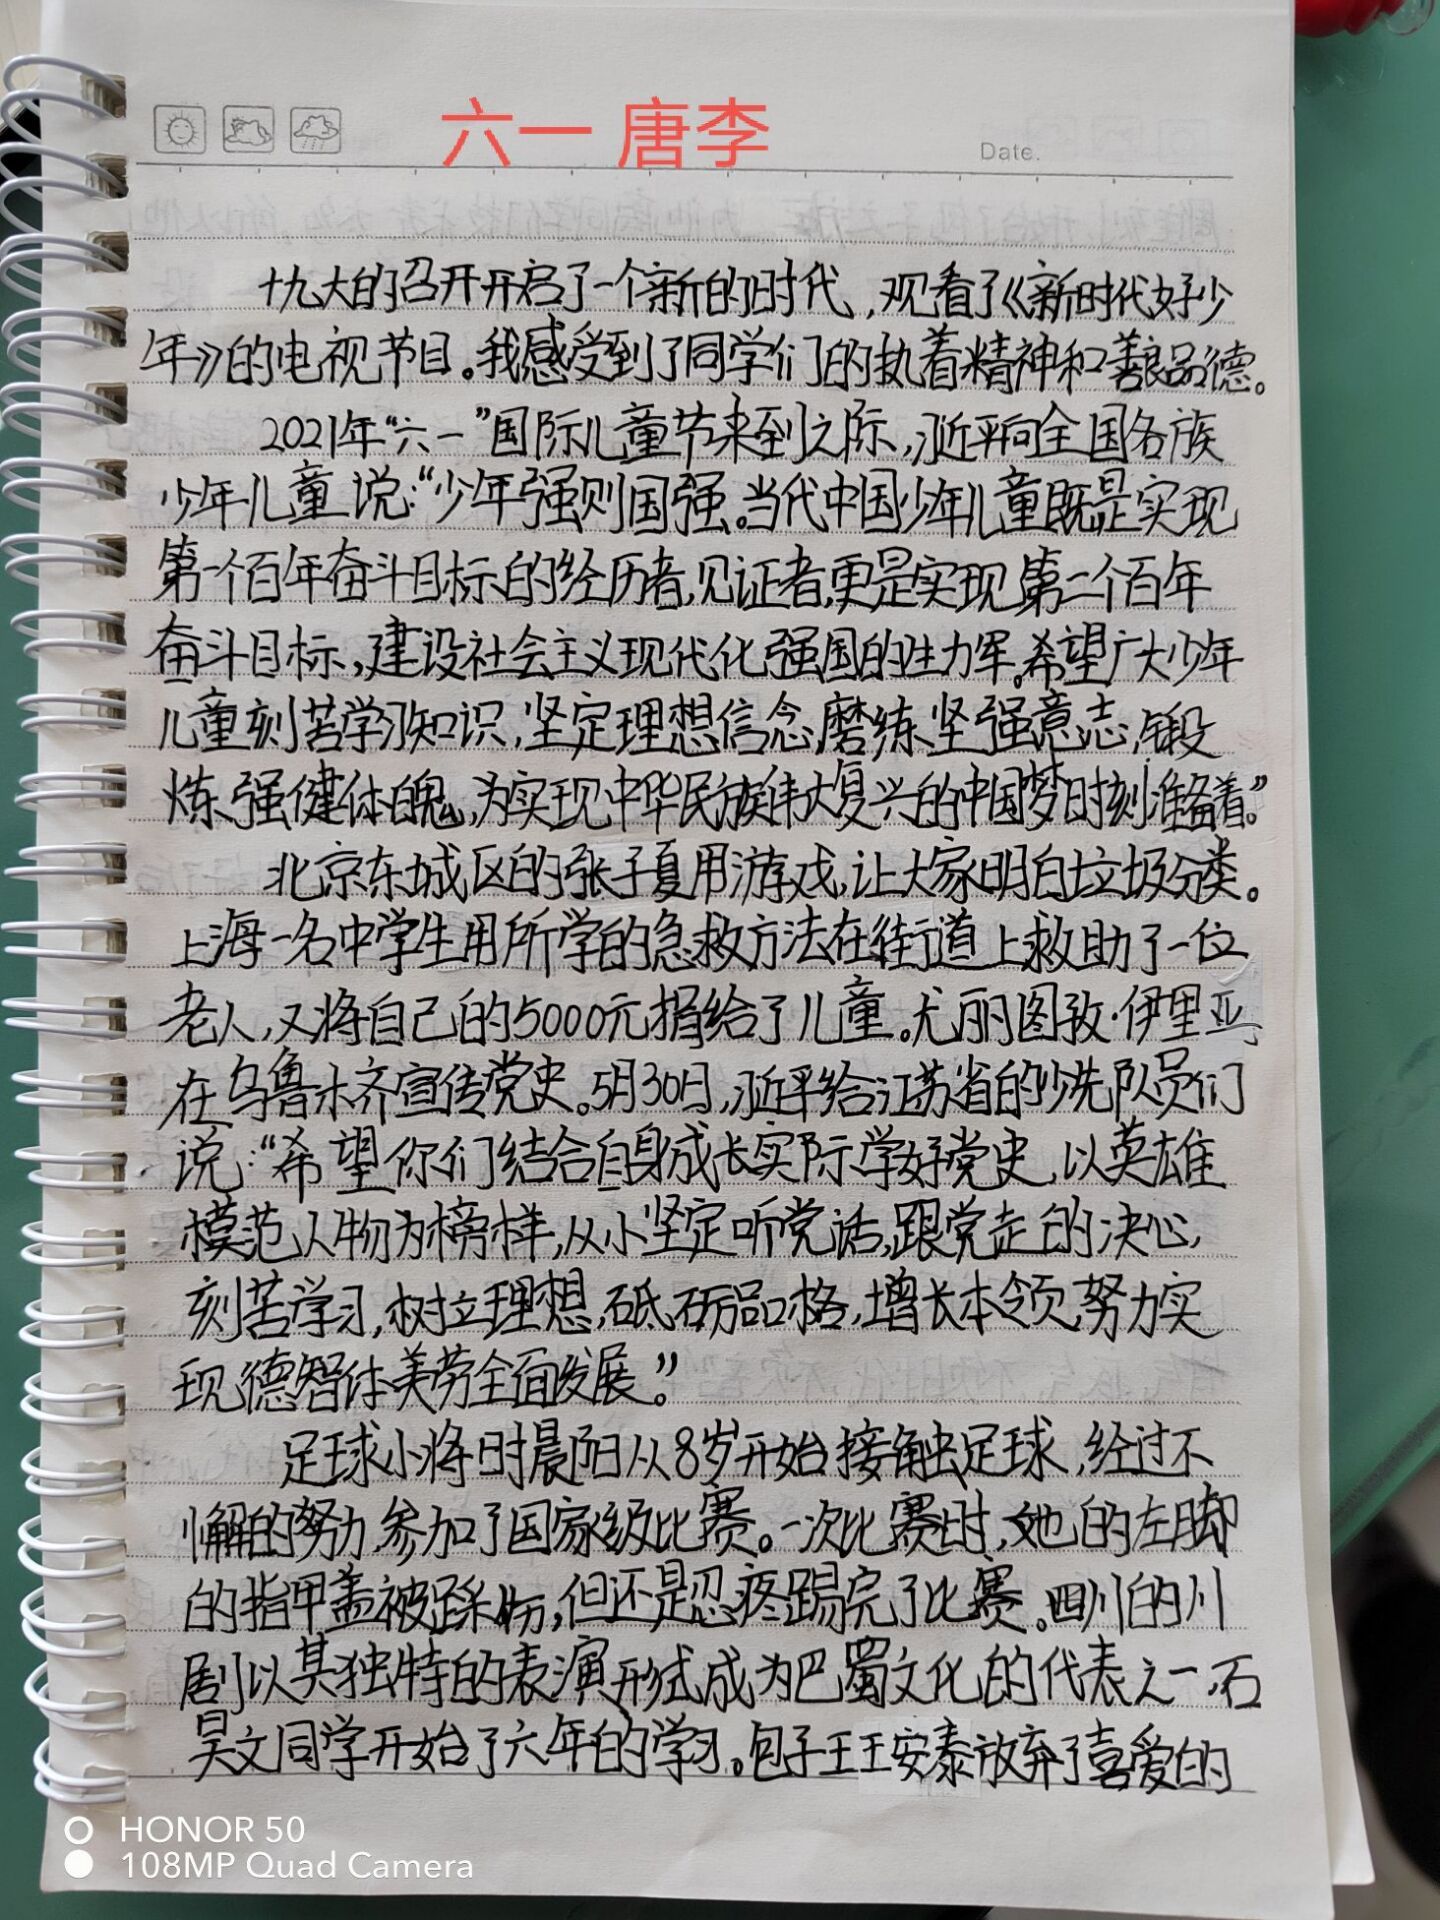 六一 唐李
Date.
十九大的召开开启了一个新的时代，观看了《新时代好少
年》的电视节目。我感受到了同学们的执着精神和善良品德。
2021年“六一”国际儿童节来到之际，习近平向全国各族
少年儿童说：“少年强则国强。当代中国少年儿童既是实现
第一个百年奋斗目标的经历者，见证者，更是实现第二个百年
奋斗目标，建设社会主义现代化强国的生力军。希望广大少年
儿童刻苦学习知识，坚定理想信念，磨练坚强意志，锻
炼强健体魄，为实现中华民族伟大复兴的中国梦时刻准备着。”
北京东城区的张子夏用游戏，让大家明白垃圾分类。
上海一名中学生用所学的急救方法在街道上救助了一位
老人，又将自己的5000元捐给了儿童。尤丽图孜·伊里亚
在乌鲁木齐宣传党史。5月30日，习近平给江苏省的少先队员们
说：“希望你们结合自身成长实际学好党史，以英雄
模范人物为榜样，从小坚定听党话，跟党走的决心，
刻苦学习，树立理想，砥砺品格，增长本领，努力实
现德智体美劳全面发展。”
足球小将时晨阳从8岁开始接触足球，经过不
懈的努力，参加了国家级比赛。一次比赛时，她的左脚
的指甲盖被踩伤，但还是忍疼踢完了比赛。四川的川
剧以其独特的表演形式成为巴蜀文化的代表之一，石
昊文同学开始了六年的学习。包子王王安泰放弃了喜爱的
HONOR 50
108MP Quad Camera